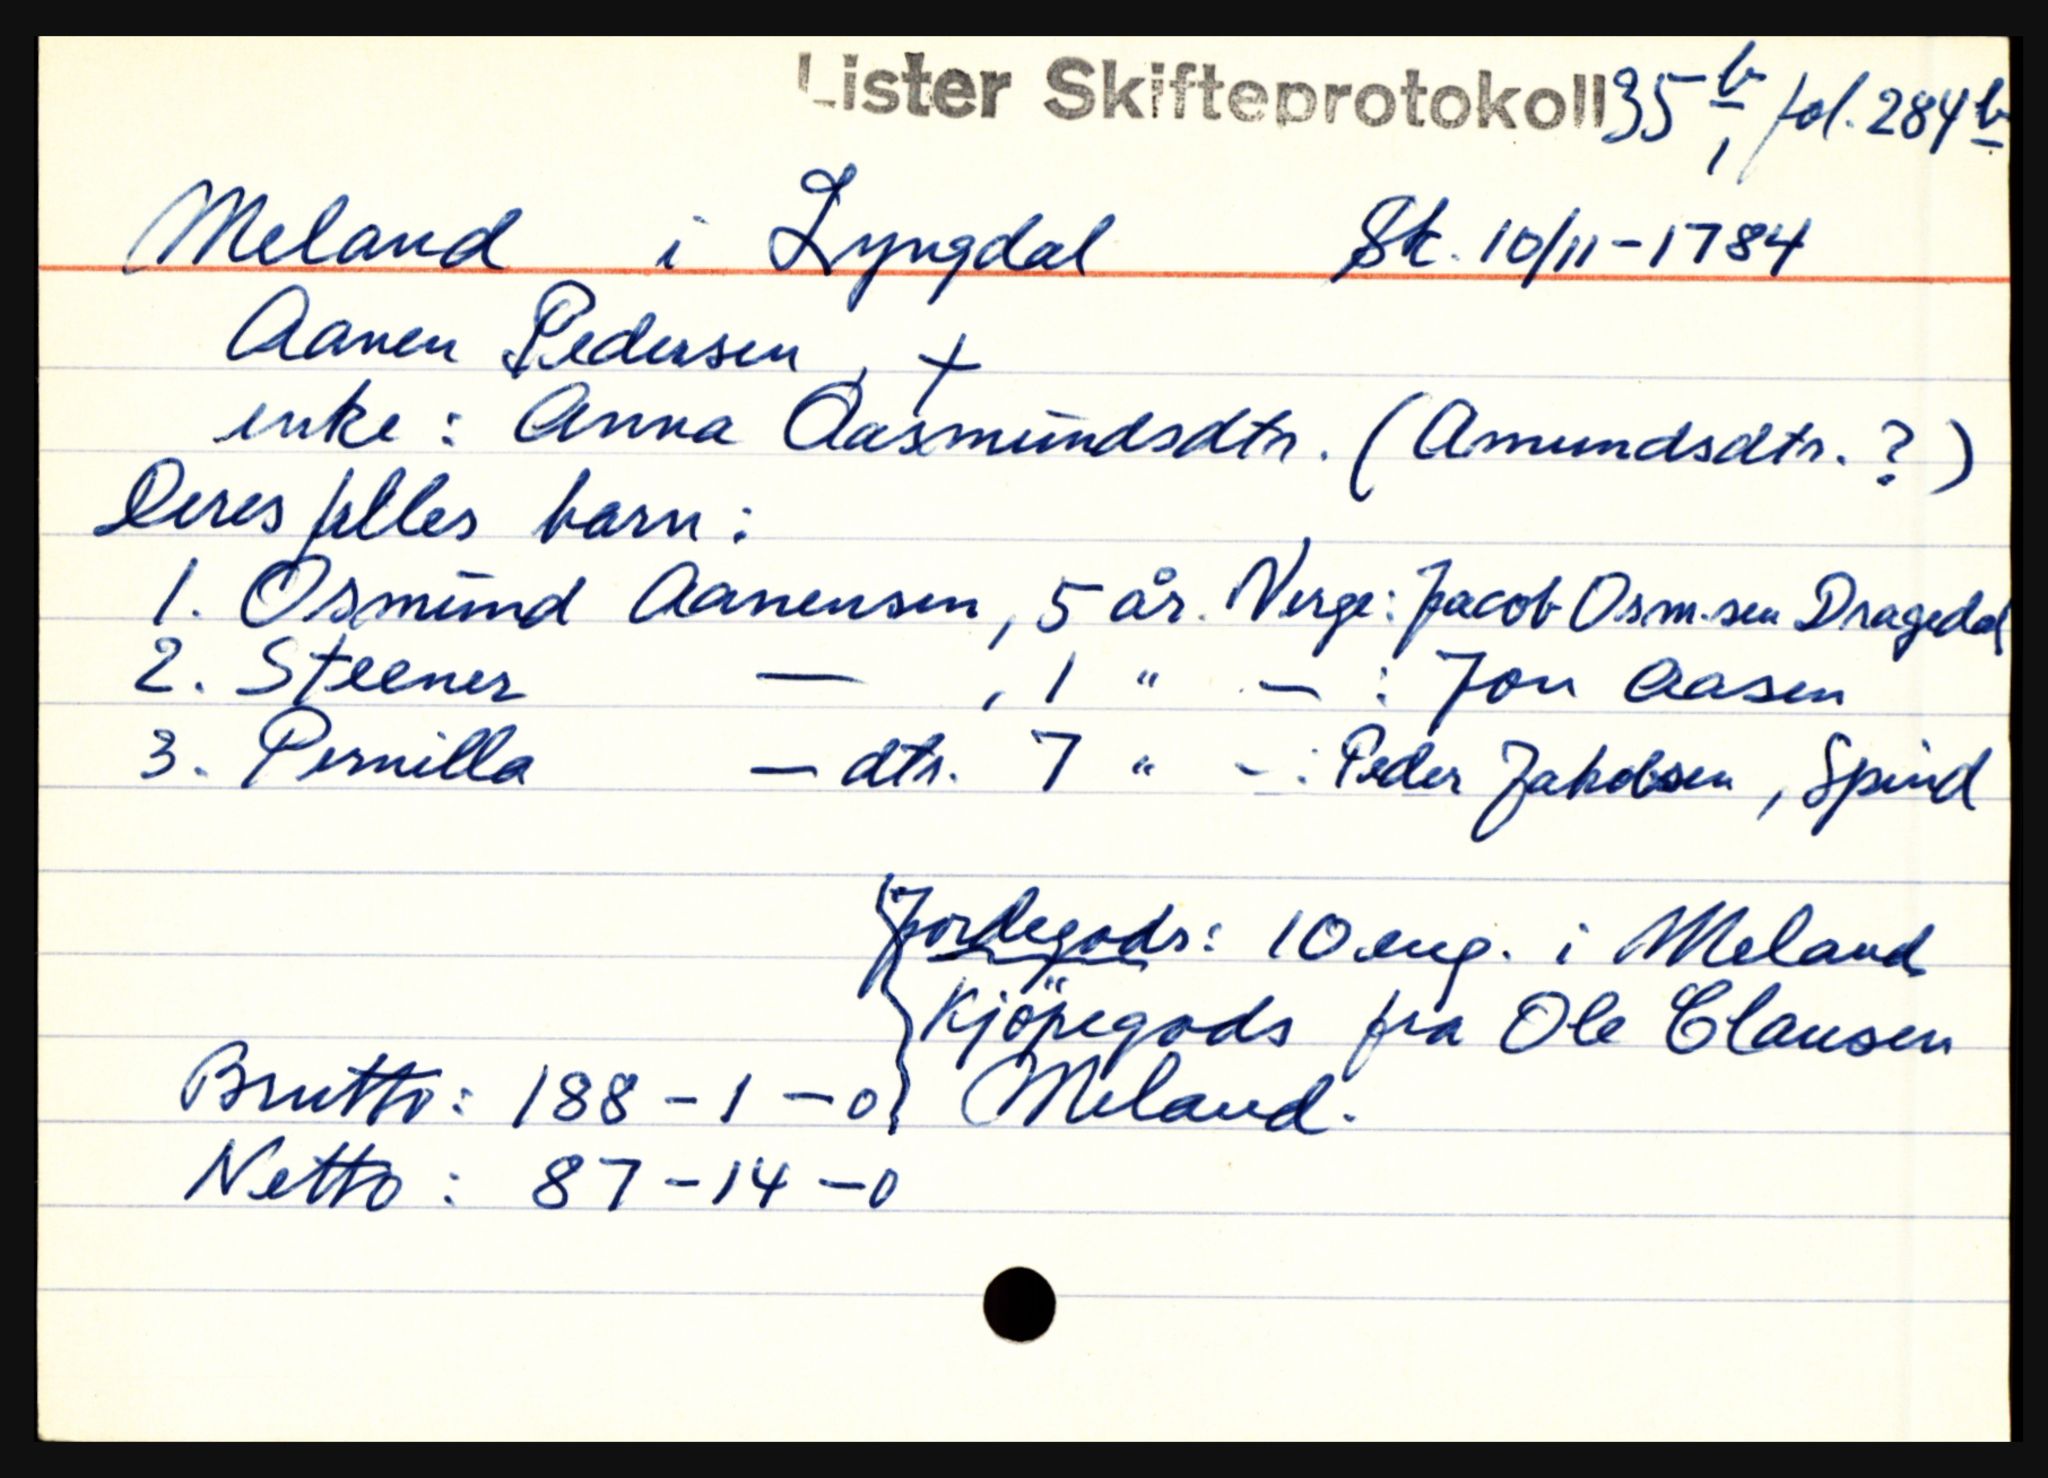 Lister Skifteprotokoll 35 b, fol. 284 b
Meland i Lyngdal Sk. 10/11-1784
Aanen Pedersen, +
enke: Anna Aasmundsdtr. (Amundsdtr.?)
Deres felles barn:
1. Osmund Aanensen, 5 år. Verge: Jacob Osm.sen Dragedal
2. Steener — , 1 " — : Jon Aasen
3. Pernilla — dtr. 7 " - : Peder Jakobsen, Spind
Jordegods: 10 eng. i Meland
Kjöpegods fra Ole Clausen
Brutto: 188 - 1 - 0 Meland.
Netto: 87 - 14 - 0